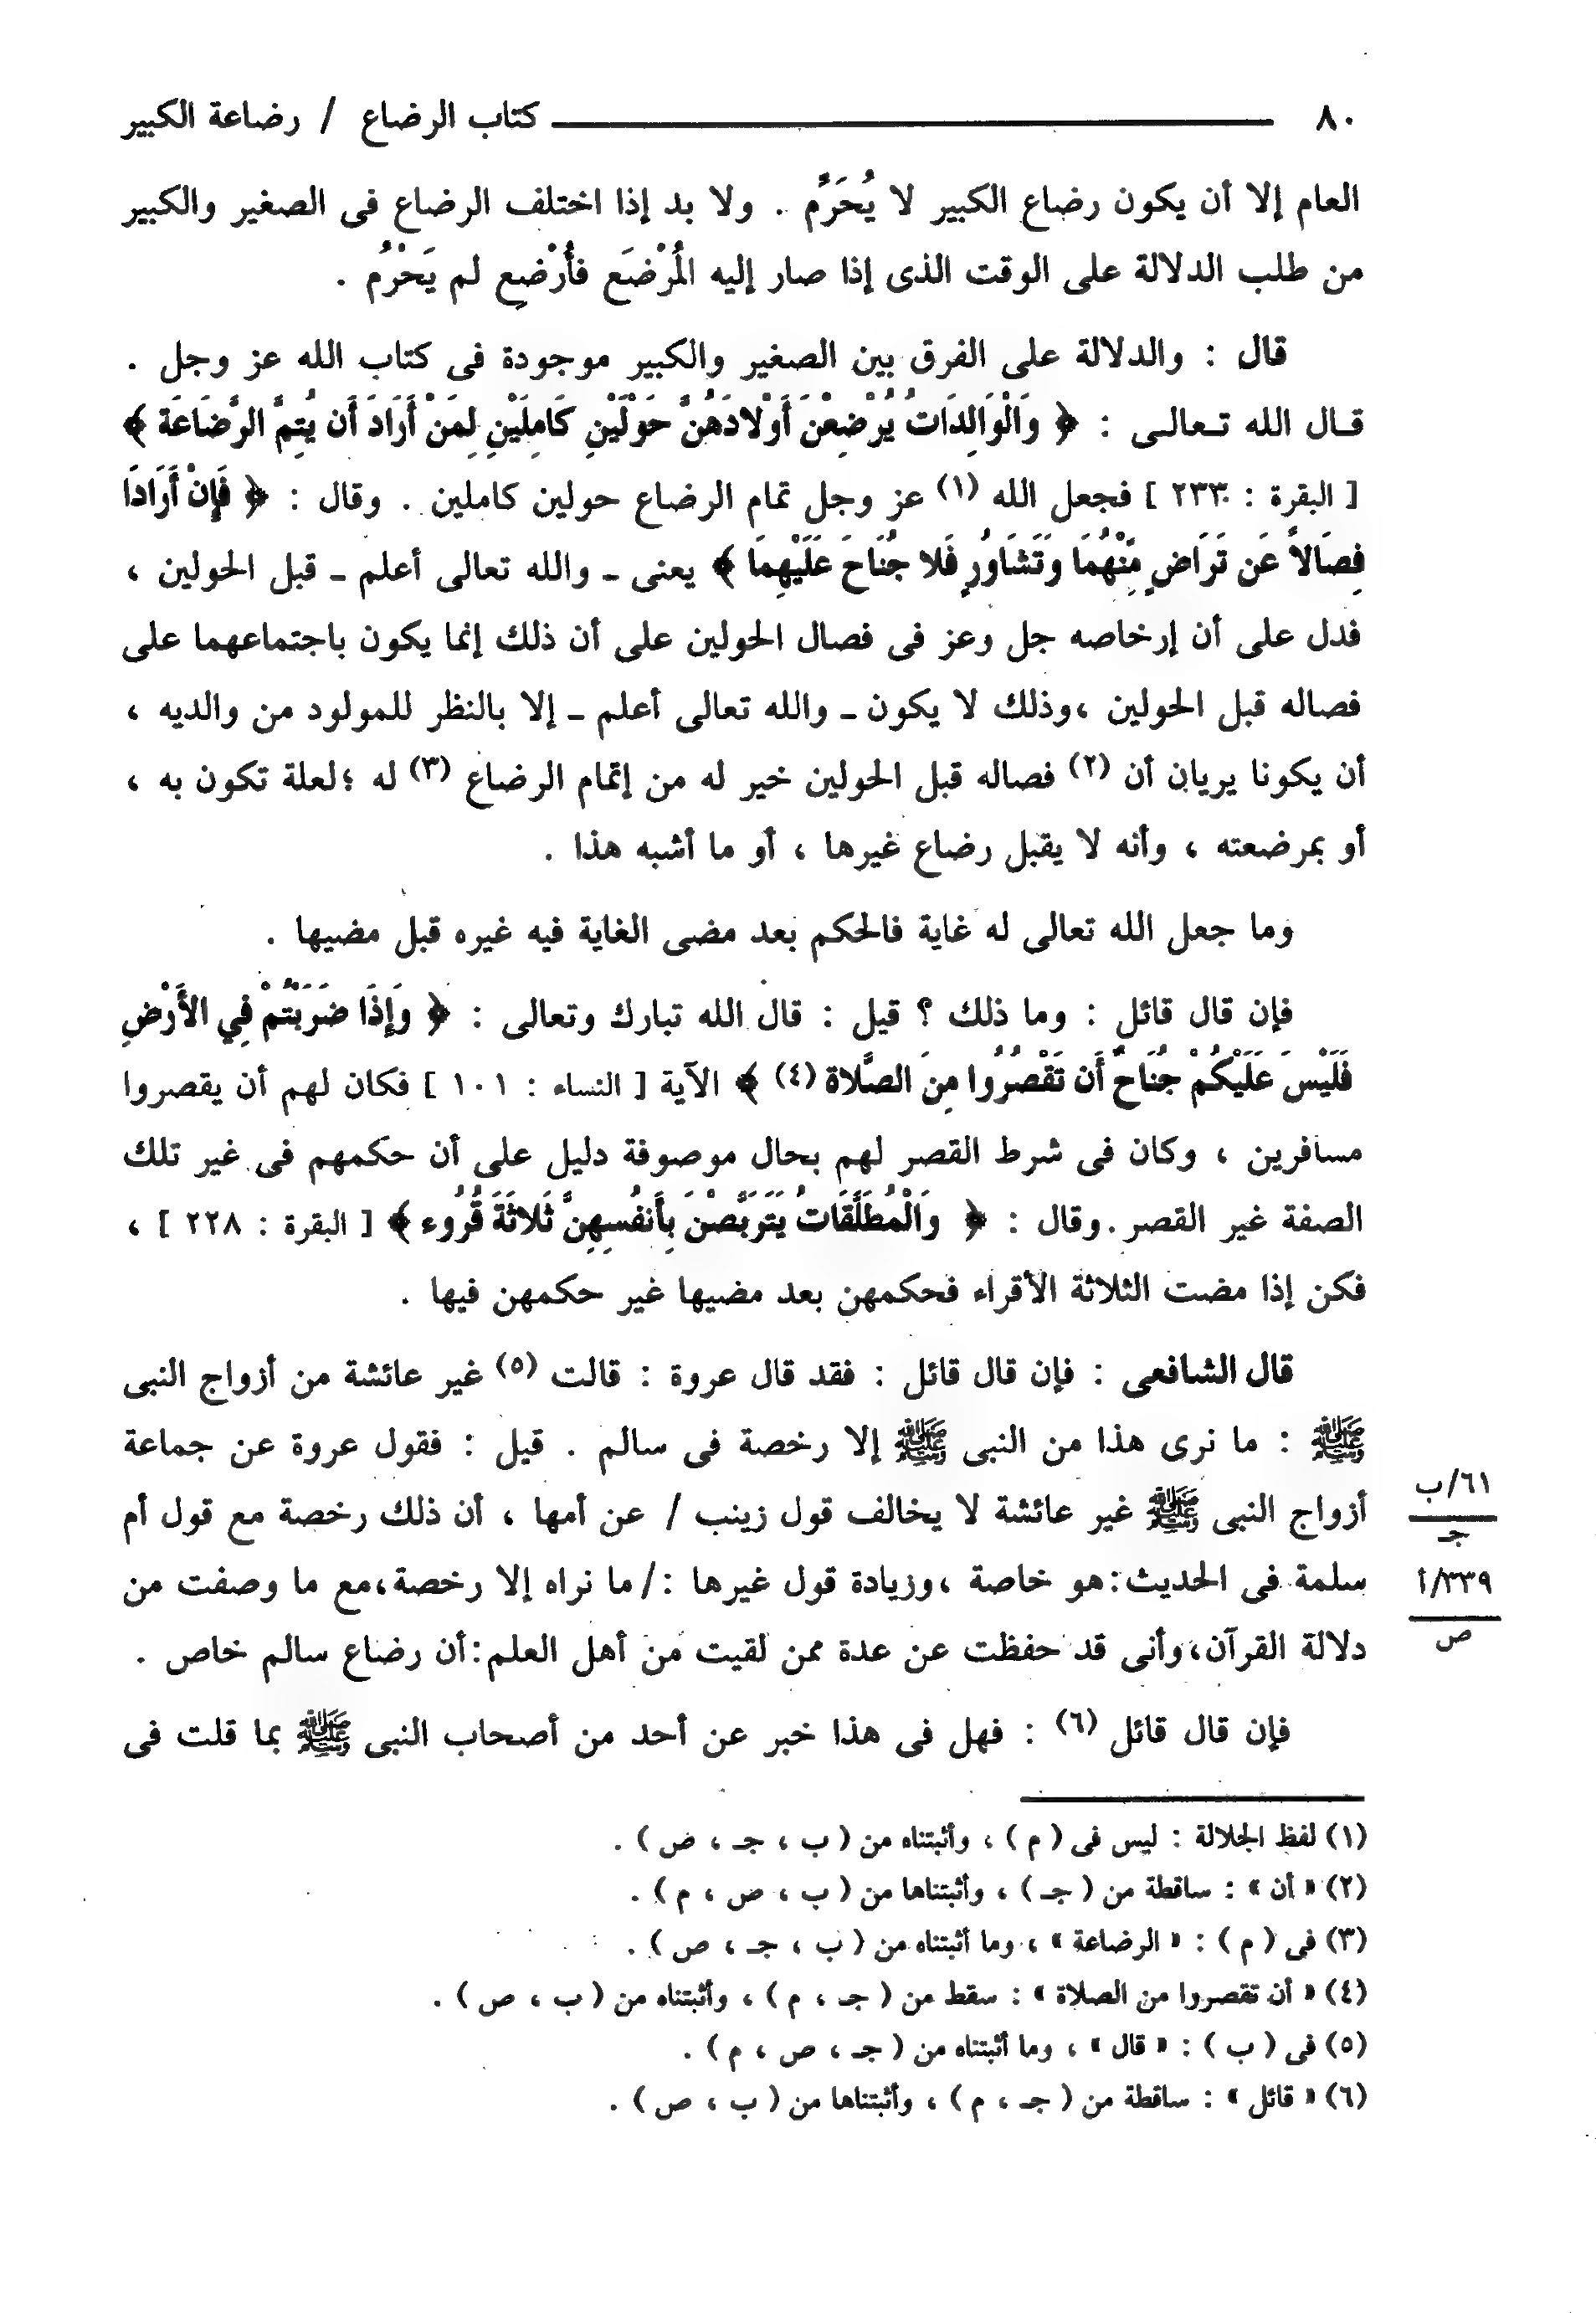 ٨٠ كتاب الرضاع / رضاعة الكبير
العام إلا أن يكون رضاع الكبير لا يُحَرِّم . ولا بد إذا اختلف الرضاع فى الصغير والكبير
من طلب الدلالة على الوقت الذى إذا صار إليه المُرْضَع فأُرْضِع لم يَحْرُم .
قال : والدلالة على الفرق بين الصغير والكبير موجودة فى كتاب الله عز وجل .
قـال الله تـعالـى : ﴿ وَالْوَالِدَاتُ يُرْضِعْنَ أَوْلادَهُنَّ حَوْلَيْنِ كَامِلَيْنِ لِمَنْ أَرَادَ أَن يُتِمَّ الرَّضَاعَةَ ﴾
[ البقرة : ٢٣٣ ] فجعل الله (١) عز وجل تمام الرضاع حولين كاملين . وقال : ﴿ فَإِنْ أَرَادَا
فِصَالاً عَن تَرَاضٍ مِّنْهُمَا وَتَشَاوُرٍ فَلا جُنَاحَ عَلَيْهِمَا ﴾ يعنى ـ والله تعالى أعلم ـ قبل الحولين ،
فدل على أن إرخاصه جل وعز فى فصال الحولين على أن ذلك إنما يكون باجتماعهما على
فصاله قبل الحولين ،وذلك لا يكون ـ والله تعالى أعلم ـ إلا بالنظر للمولود من والديه ،
أن يكونا يريان أن (٢) فصاله قبل الحولين خير له من إتمام الرضاع (٣) له ؛لعلة تكون به ،
أو بمرضعته ، وأنه لا يقبل رضاع غيرها ، أو ما أشبه هذا .
وما جعل الله تعالى له غاية فالحكم بعد مضى الغاية فيه غيره قبل مضيها .
فإن قال قائل : وما ذلك ؟ قيل : قال الله تبارك وتعالى : ﴿ وَإِذَا ضَرَبْتُمْ فِي الأَرْضِ
فَلَيْسَ عَلَيْكُمْ جُنَاحٌ أَن تَقْصُرُوا مِنَ الصَّلاة (٤) ﴾ الآية [ النساء : ١٠١ ] فكان لهم أن يقصروا
مسافرين ، وكان فى شرط القصر لهم بحال موصوفة دليل على أن حكمهم فى غير تلك
الصفة غير القصر.وقال : ﴿ وَالْمُطَلَّقَاتُ يَتَرَبَّصْنَ بِأَنفُسِهِنَّ ثَلاثَةَ قُرُوء ﴾ [ البقرة : ٢٢٨ ] ،
فكن إذا مضت الثلاثة الأقراء فحكمهن بعد مضيها غير حكمهن فيها .
قال الشافعى : فإن قال قائل : فقد قال عروة : قالت (٥) غير عائشة من أزواج النبى
ﷺ : ما نرى هذا من النبى ﷺ إلا رخصة فى سالم . قيل : فقول عروة عن جماعة
أزواج النبى ﷺ غير عائشة لا يخالف قول زينب / عن أمها ، أن ذلك رخصة مع قول أم
سلمة فى الحديث:هو خاصة ،وزيادة قول غيرها :/ما نراه إلا رخصة،مع ما وصفت من
دلالة القرآن،وأنى قد حفظت عن عدة ممن لقيت من أهل العلم:أن رضاع سالم خاص .
فإن قال قائل (٦) : فهل فى هذا خبر عن أحد من أصحاب النبى ﷺ بما قلت فى
٦١/ب
جـ
٣٣٩/أ
ص
(١) لفظ الجلالة : ليس فى ( م ) ، وأثبتناه من ( ب ، جـ ، ص ) .
(٢) « أن » : ساقطة من ( جـ ) ، وأثبتناها من ( ب ، ص ، م ) .
(٣) فى ( م ) : « الرضاعة » ، وما أثبتناه من ( ب ، جـ ، ص ) .
(٤) « أن تقصروا من الصلاة » : سقط من ( جـ ، م ) ، وأثبتناه من ( ب ، ص ) .
(٥) فى ( ب ) : « قال » ، وما أثبتناه من ( جـ ، ص ، م ) .
(٦) « قائل » : ساقطة من ( جـ ، م ) ، وأثبتناها من ( ب ، ص ) .